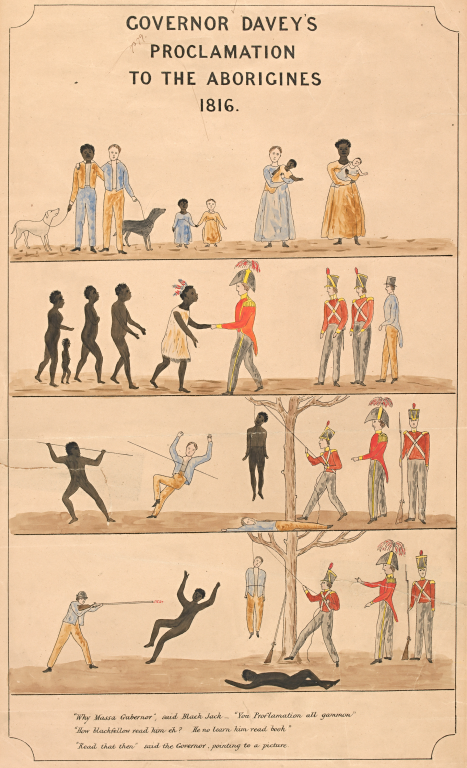 GOVERNOR DAVEY'S
PROCLAMATION
TO THE ABORIGINES
1816.
"Why Massa Gubernor", said Black Jack_ "You Proclamation all gammon"
"How blackfellow read him eh? He no learn him read book"
"Read that then" said the Governor, pointing to a picture